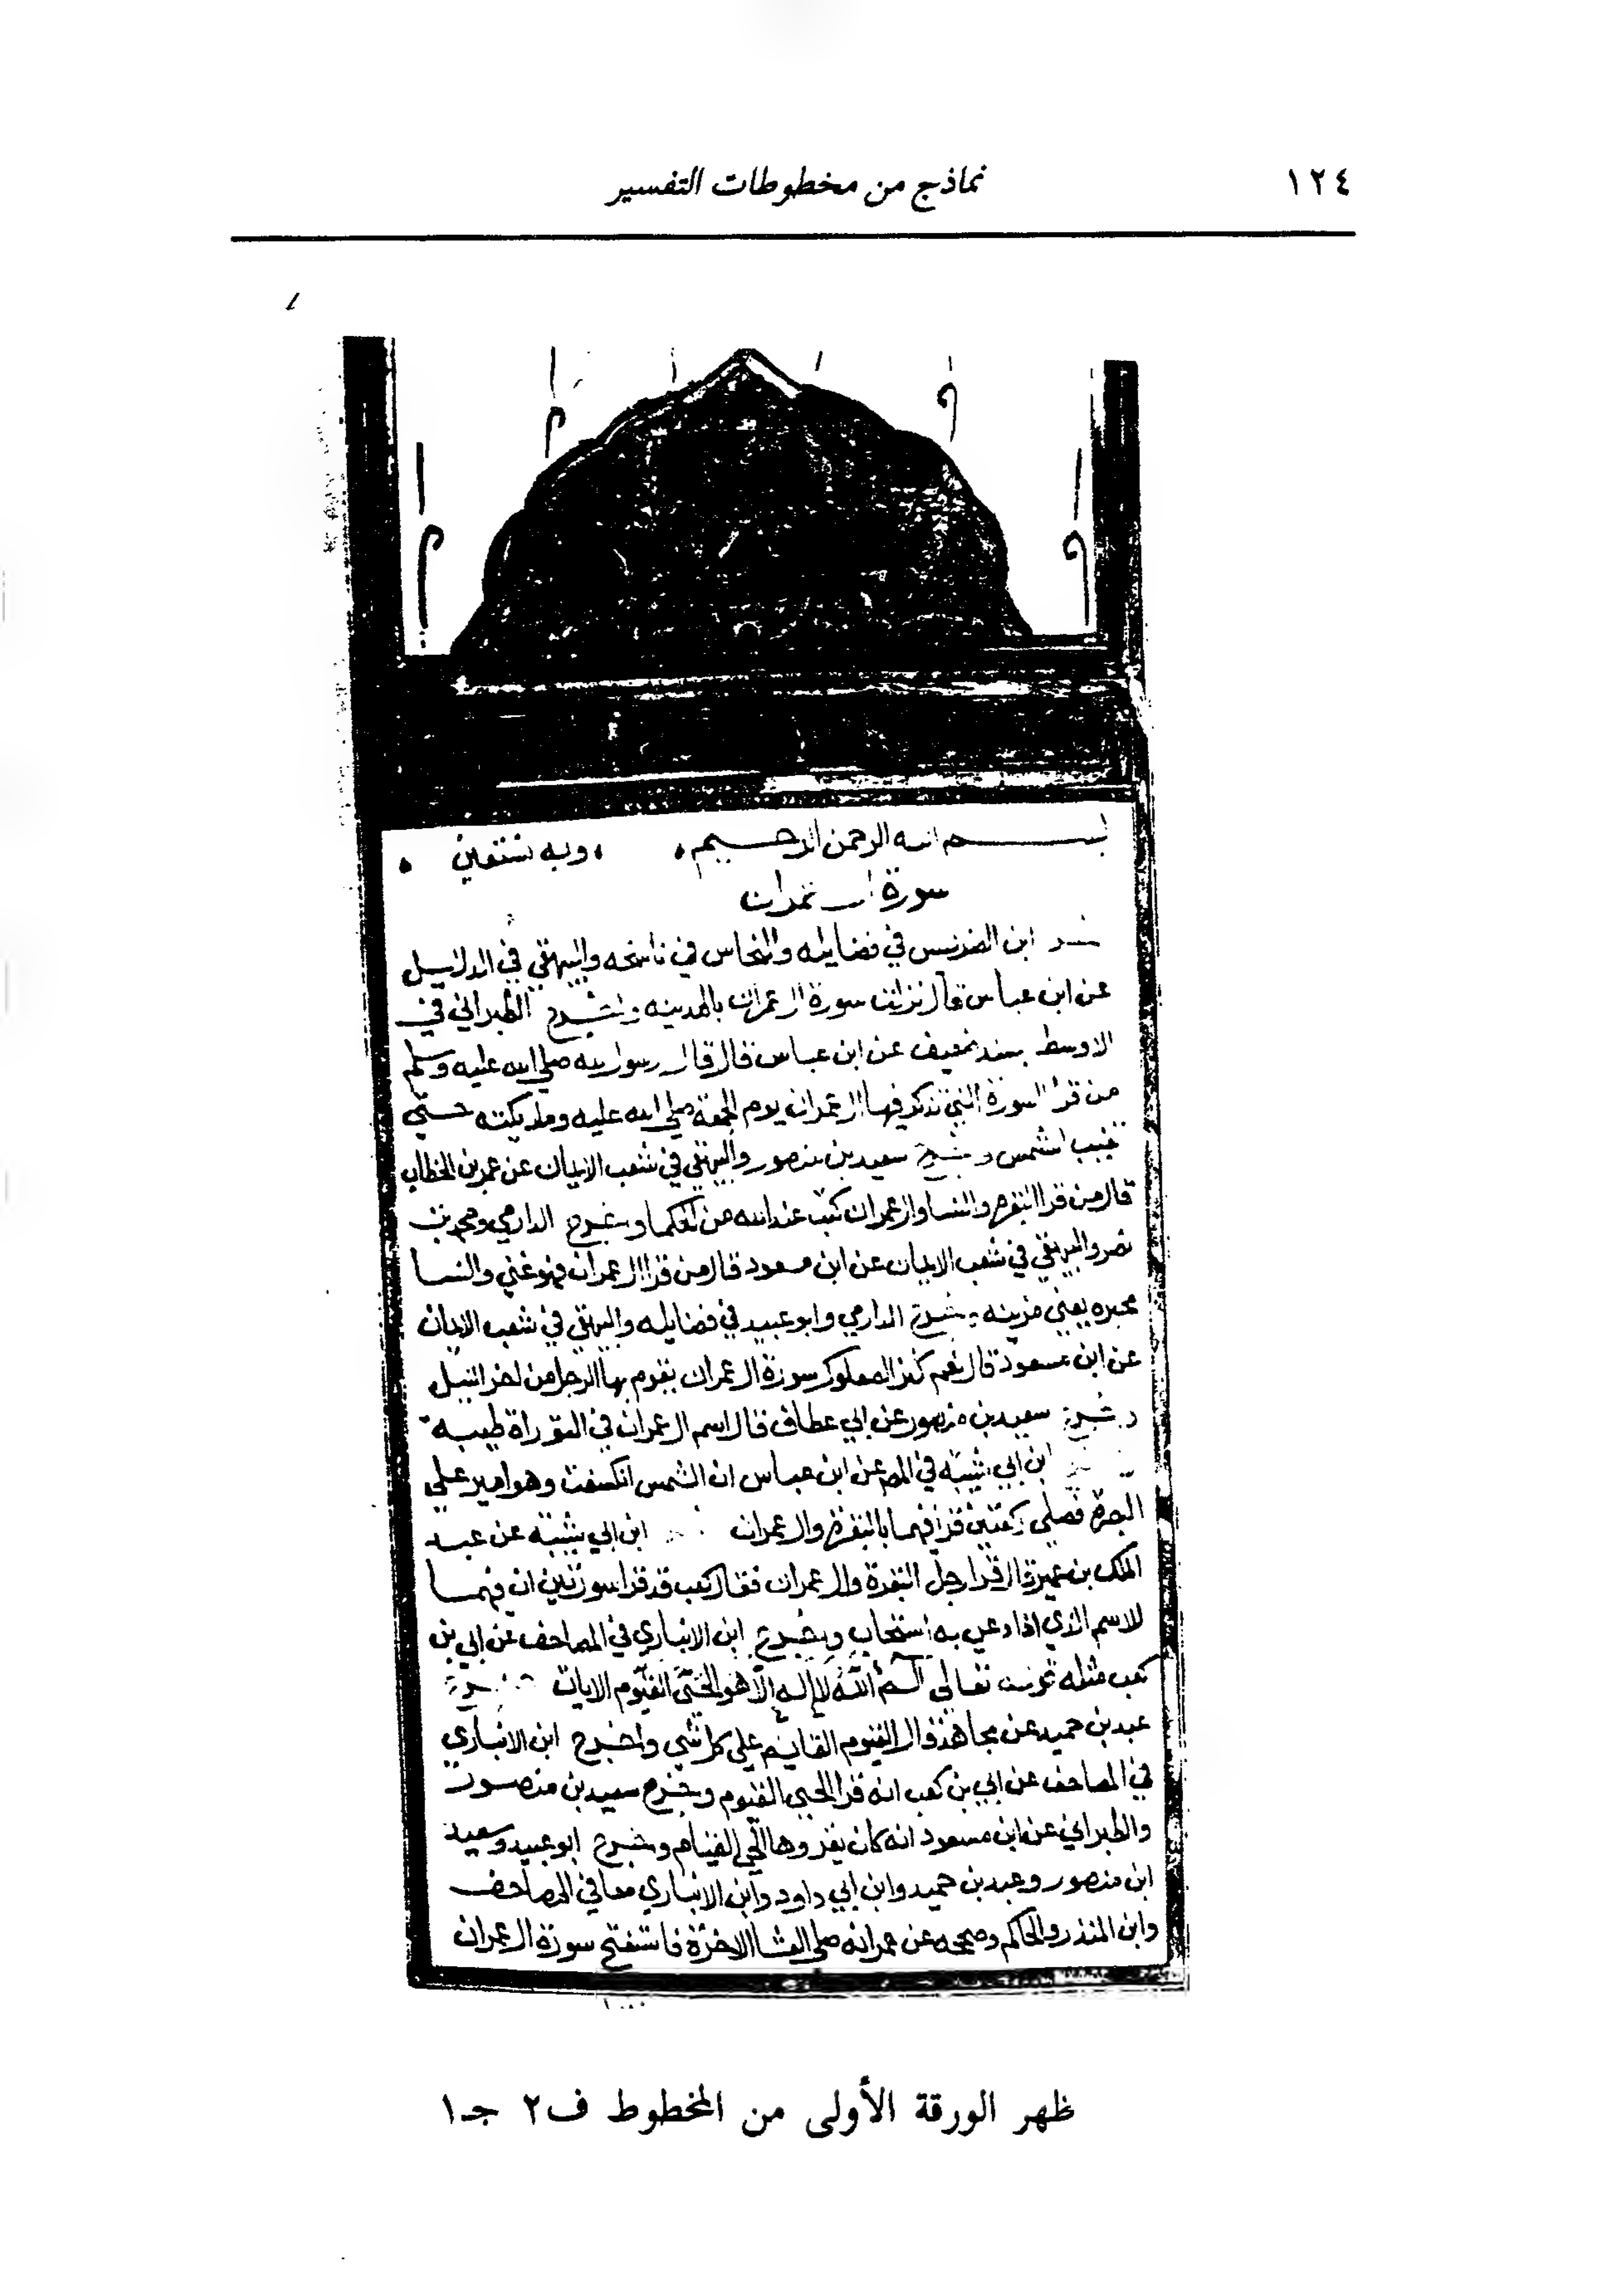 ١٢٤ نماذج من مخطوطات التفسير
بسم الله الرحمن الرحيم وبه نستعين
سورة ال عمران
ابن الضريس في فضايله والنحاس في ناسخه والبيهقي في الدلايل
عن ابن عباس قال نزلت سورة ال عمران بالمدينه واخرج الطبراني في
الاوسط بسند ضعيف عن ابن عباس قال قال رسول الله صلي الله عليه وسلم
من قرا السورة التي تذكر فيها ال عمران يوم الجمعة صلي الله عليه وملايكته حتي
تغيب الشمس واخرج سعيد بن منصور والبيهقي في شعب الايمان عن عمر بن الخطاب
قال من قرا البقرة والنسا وال عمران كتب عند الله من الحكما واخرج الدارمي ومحمد بن
نصر والبيهقي في شعب الايمان عن ابن مسعود قال من قرا ال عمران فهو غني والنسا
محبره يعني مزينه واخرج الدارمي وابو عبيد في فضايله والبيهقي في شعب الايمان
عن ابن مسعود قال نعم كنز الصعلوك سورة ال عمران يقوم بها الرجل من اخر الليل
واخرج سعيد بن منصور عن ابي عطاف قال اسم ال عمران في التوراة طيبة
ابن ابي شيبة في المص عن ابن عباس ان الشمس انكسفت وهو امير علي
البصرة فصلي ركعتين قرا فيهما بالبقرة وال عمران ابن ابي شيبة عن عبد
الملك بن عمير قال قرا رجل البقرة وال عمران فقال كعب قد قرا سورتين ان فيهما
للاسم الذي اذا دعي به استجاب واخرج ابن الانباري في المصاحف عن ابي بن
كعب مثله قوله تعالي الم الله لا إله إلا هو الحي القيوم الايات
عبد بن حميد عن مجاهد قال القيوم القايم علي كل شي واخرج ابن الانباري
في المصاحف عن ابي بن كعب انه قرا الحي القيوم واخرج سعيد بن منصور
والطبراني عن ابن مسعود انه كان يقروها الحي القيام واخرج ابو عبيد وسعيد
ابن منصور وعبد بن حميد وابن ابي داود وابن الانباري معا في المصاحف
وابن المنذر والحاكم وصححه عن عمر انه صلي العشا الاخرة فاستفتح سورة ال عمران
ظهر الورقة الأولى من المخطوط ف٢ جـ١